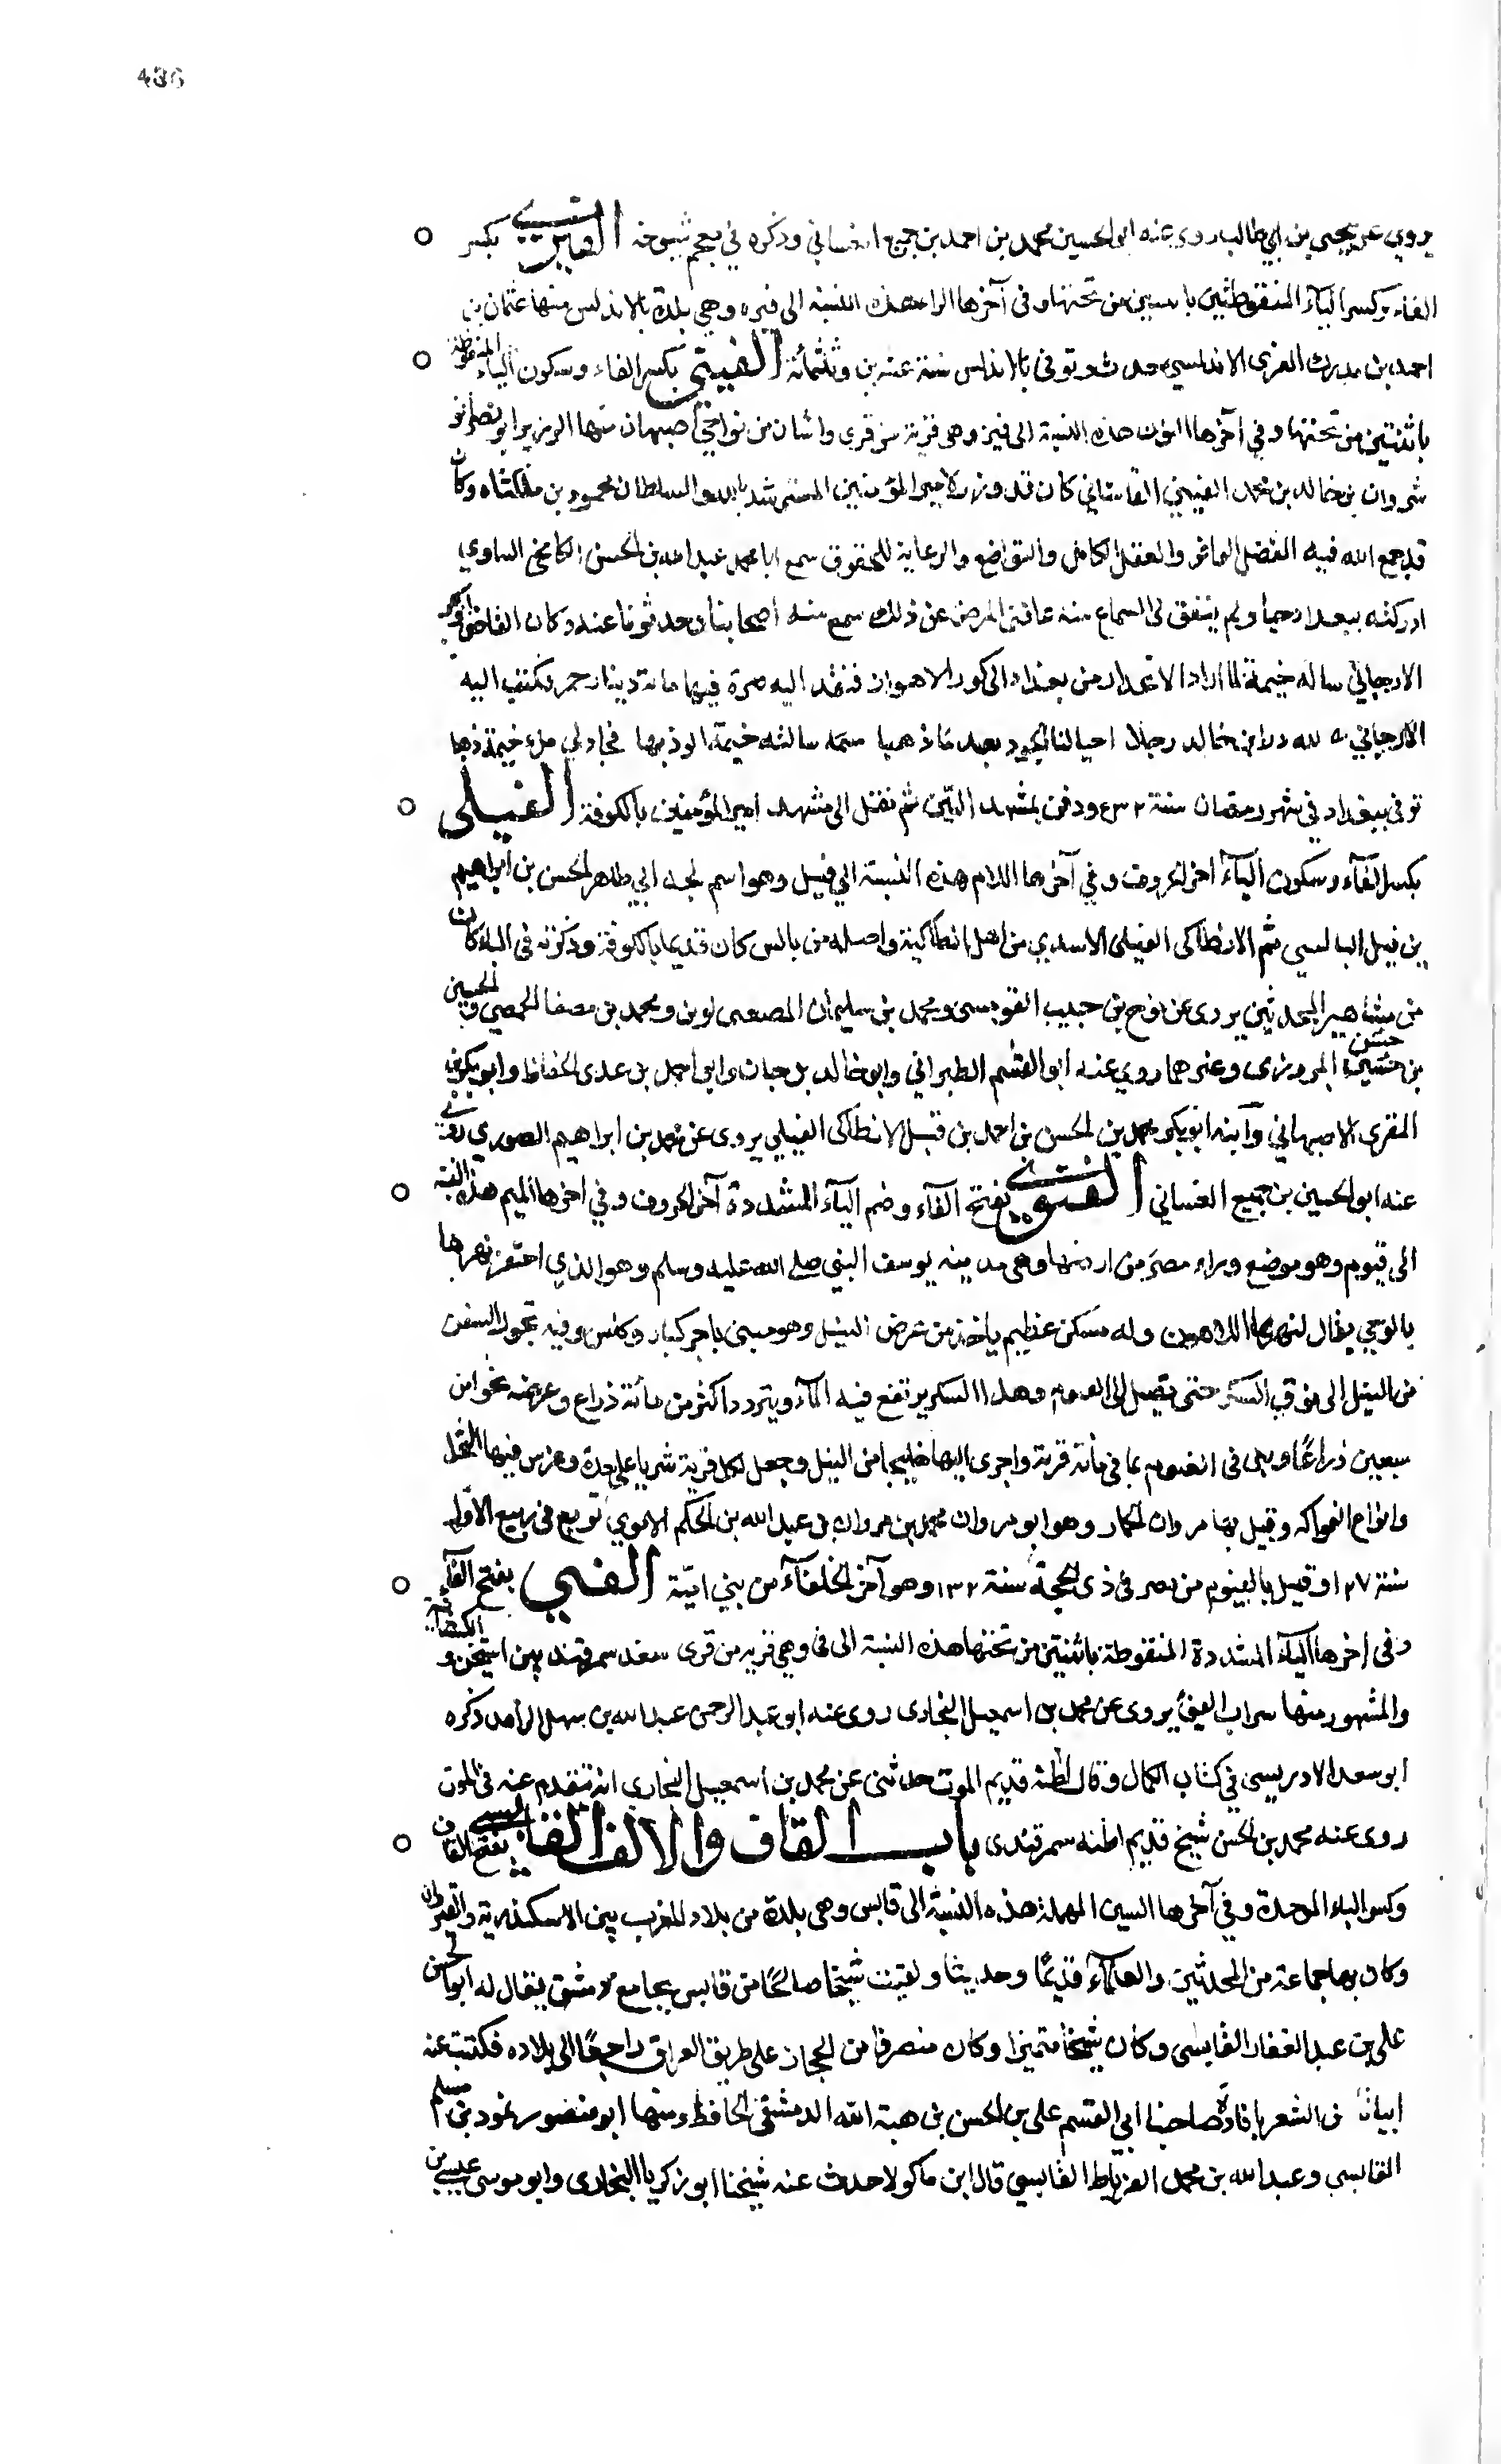 436
يروي عن يحيى بن ابي طالب روى عنه ابو الحسين محمد بن احمد بن جميع الغساني وذكره في معجم شيوخه بكسر
الفاء وكسر الياء المنقوطتين باثنتين من تحتها وفي آخرها الراء هذه النسبة الى فيره وهي بلدة بالاندلس منها عثمان بن
احمد بن مدرك الاندلسي حدث وتوفي بالاندلس سنة عشرين وثلثمائة الفيني بكسر الفاء وسكون الياء المنقوطة
باثنتين من تحتها وفي آخرها النون هذه النسبة الى فين وهي قرية من قرى قاشان من نواحي اصبهان منها الوزير ابو نصر انو
شروان بن خالد بن محمد الفيني القاشاني كان قد وزر لامير المؤمنين المسترشد بالله والسلطان محمود بن ملكشاه وكان
قد جمع الله فيه الفضل الوافر والعقل الكامل والتواضع والرعاية للحقوق سمع ابا محمد عبد الله بن الحسن الكامخي الساوي
ادركته ببغداد حيا ولم يتفق لي السماع منه عاقني المرض عن ذلك سمع منه اصحابنا وحدثونا عنه وكان القاضي ابو بكر
الارجاني ساله خيمة لما اراد الانحدار من بغداد الى كور الاهواز فنفذ اليه صرة فيها مائة دينار حمر فكتب اليه
الارجاني لله در ابن خالد رجلا احيا لنا الجود بعد ما ذهبا سالته خيمة الوذ بها فجاد لي ملء خيمة ذهبا
توفي ببغداد في شهر رمضان سنة ٥٣٢ ودفن بمشهد التين ثم نقل الى مشهد امير المؤمنين بالكوفة الفيلى
بكسر الفاء وسكون الياء آخر الحروف وفي آخرها اللام هذه النسبة الى فيل وهو اسم لجد ابي طاهر الحسن بن ابراهيم
بن فيل البالسي ثم الانطاكى الفيلى الاسدي من اهل انطاكية واصله من بالس كان قديما بالكوفة وذكرته في الباء كان
من مشاهير المحدثين يروى عن نوح بن حبيب القومسى ومحمد بن سليمان لوين ومحمد بن مصفا الحمصي والحسين
بن حسن المروزى وغيرهما روي عنه ابو القسم الطبراني وابو احمد بن عدى الحفاظ وابو بكر بن
المقرى الاصبهاني وابنه ابو بكر محمد بن الحسن بن احمد بن فيل الانطاكى الفيلي يروى عن محمد بن ابراهيم الصوري روى
عنه ابو الحسين بن جميع الغساني الفيومي بفتح الفاء وضم الياء المشددة آخر الحروف وفي آخرها الميم هذه النسبة
الى فيوم وهو موضع وراء مصر من ارضها وهى مدينه يوسف النبي صلى الله عليه وسلم وهو الذي احتفر نهرها
بالوحي يقال لنهرها اللاهون وله سكر عظيم ياخذ من عرض النيل وهو مبني باجر كبار وكلس وفيه تحول السفن
من النيل الى فوق السكر حتى تصل الى الفيوم وهذا السكر يرتفع فيه الماء ويتردد اكثر من مائة ذراع وعرضه نحو من
سبعين ذراعًا وبنى في الفيوم ثمانى مائة قرية واجرى اليها خليجا من النيل وجعل لكل قرية شربا على حدة وغرس فيها النخل
وانواع الفواكه وقتل بها مروان الحمار وهو ابو مروان محمد بن مروان بن عبد الله بن الحكم الاموي بويع في ربيع الاول
سنة ١٢٧ وقتل بالفيوم من مصر في ذى الحجة سنة ١٣٢ وهو آخر الخلفاء من بني امية الفيي بفتح الفاء
وفى اخرها الياء المشددة المنقوطة باثنتين من تحتها هذه النسبة الى في وهي قريه من قرى سغد سمرقند بين اشتيخن والكشانية
والمشهور منها سراب الفيي يروى عن محمد بن اسمعيل البخارى روى عنه ابو عبد الرحمن عبد الله بن سهل الزاهد ذكره
ابو سعد الادريسي في كتاب الكمال وقال اظنه قديم الموت حدثنى عن محمد بن اسمعيل البخاري انه تقدم عنه في الموت
روى عنه محمد بن الحسن شيخ قديم اظنه سمرقندى باب القاف والالف القابسي بفتح القاف
وكسر الباء الموحدة وفي آخرها السين المهملة هذه النسبة الى قابس وهى بلدة من بلاد المغرب بين الاسكندرية والقيروان
وكان بها جماعة من المحدثين والعلماء قديمًا وحديثا ولقيت شيخا صالحًا من قابس بجامع دمشق يقال له ابو الحسن
على بن عبد الغفار القابسى وكان شيخا متميزا وكان منصرفا من الحجاز على طريق العراق راجعًا الى بلاده فكتبت عنه
ابياتًا من الشعر بافادة صاحبنا ابي القسم على بن الحسن بن هبة الله الدمشقى الحافظ ومنها ابو منصور بن مسلم
القابسي وعبد الله بن محمد القابسي قال ابن ماكولا حدث عنه شيخنا ابو زكريا البخارى وابو موسى عيسى بن